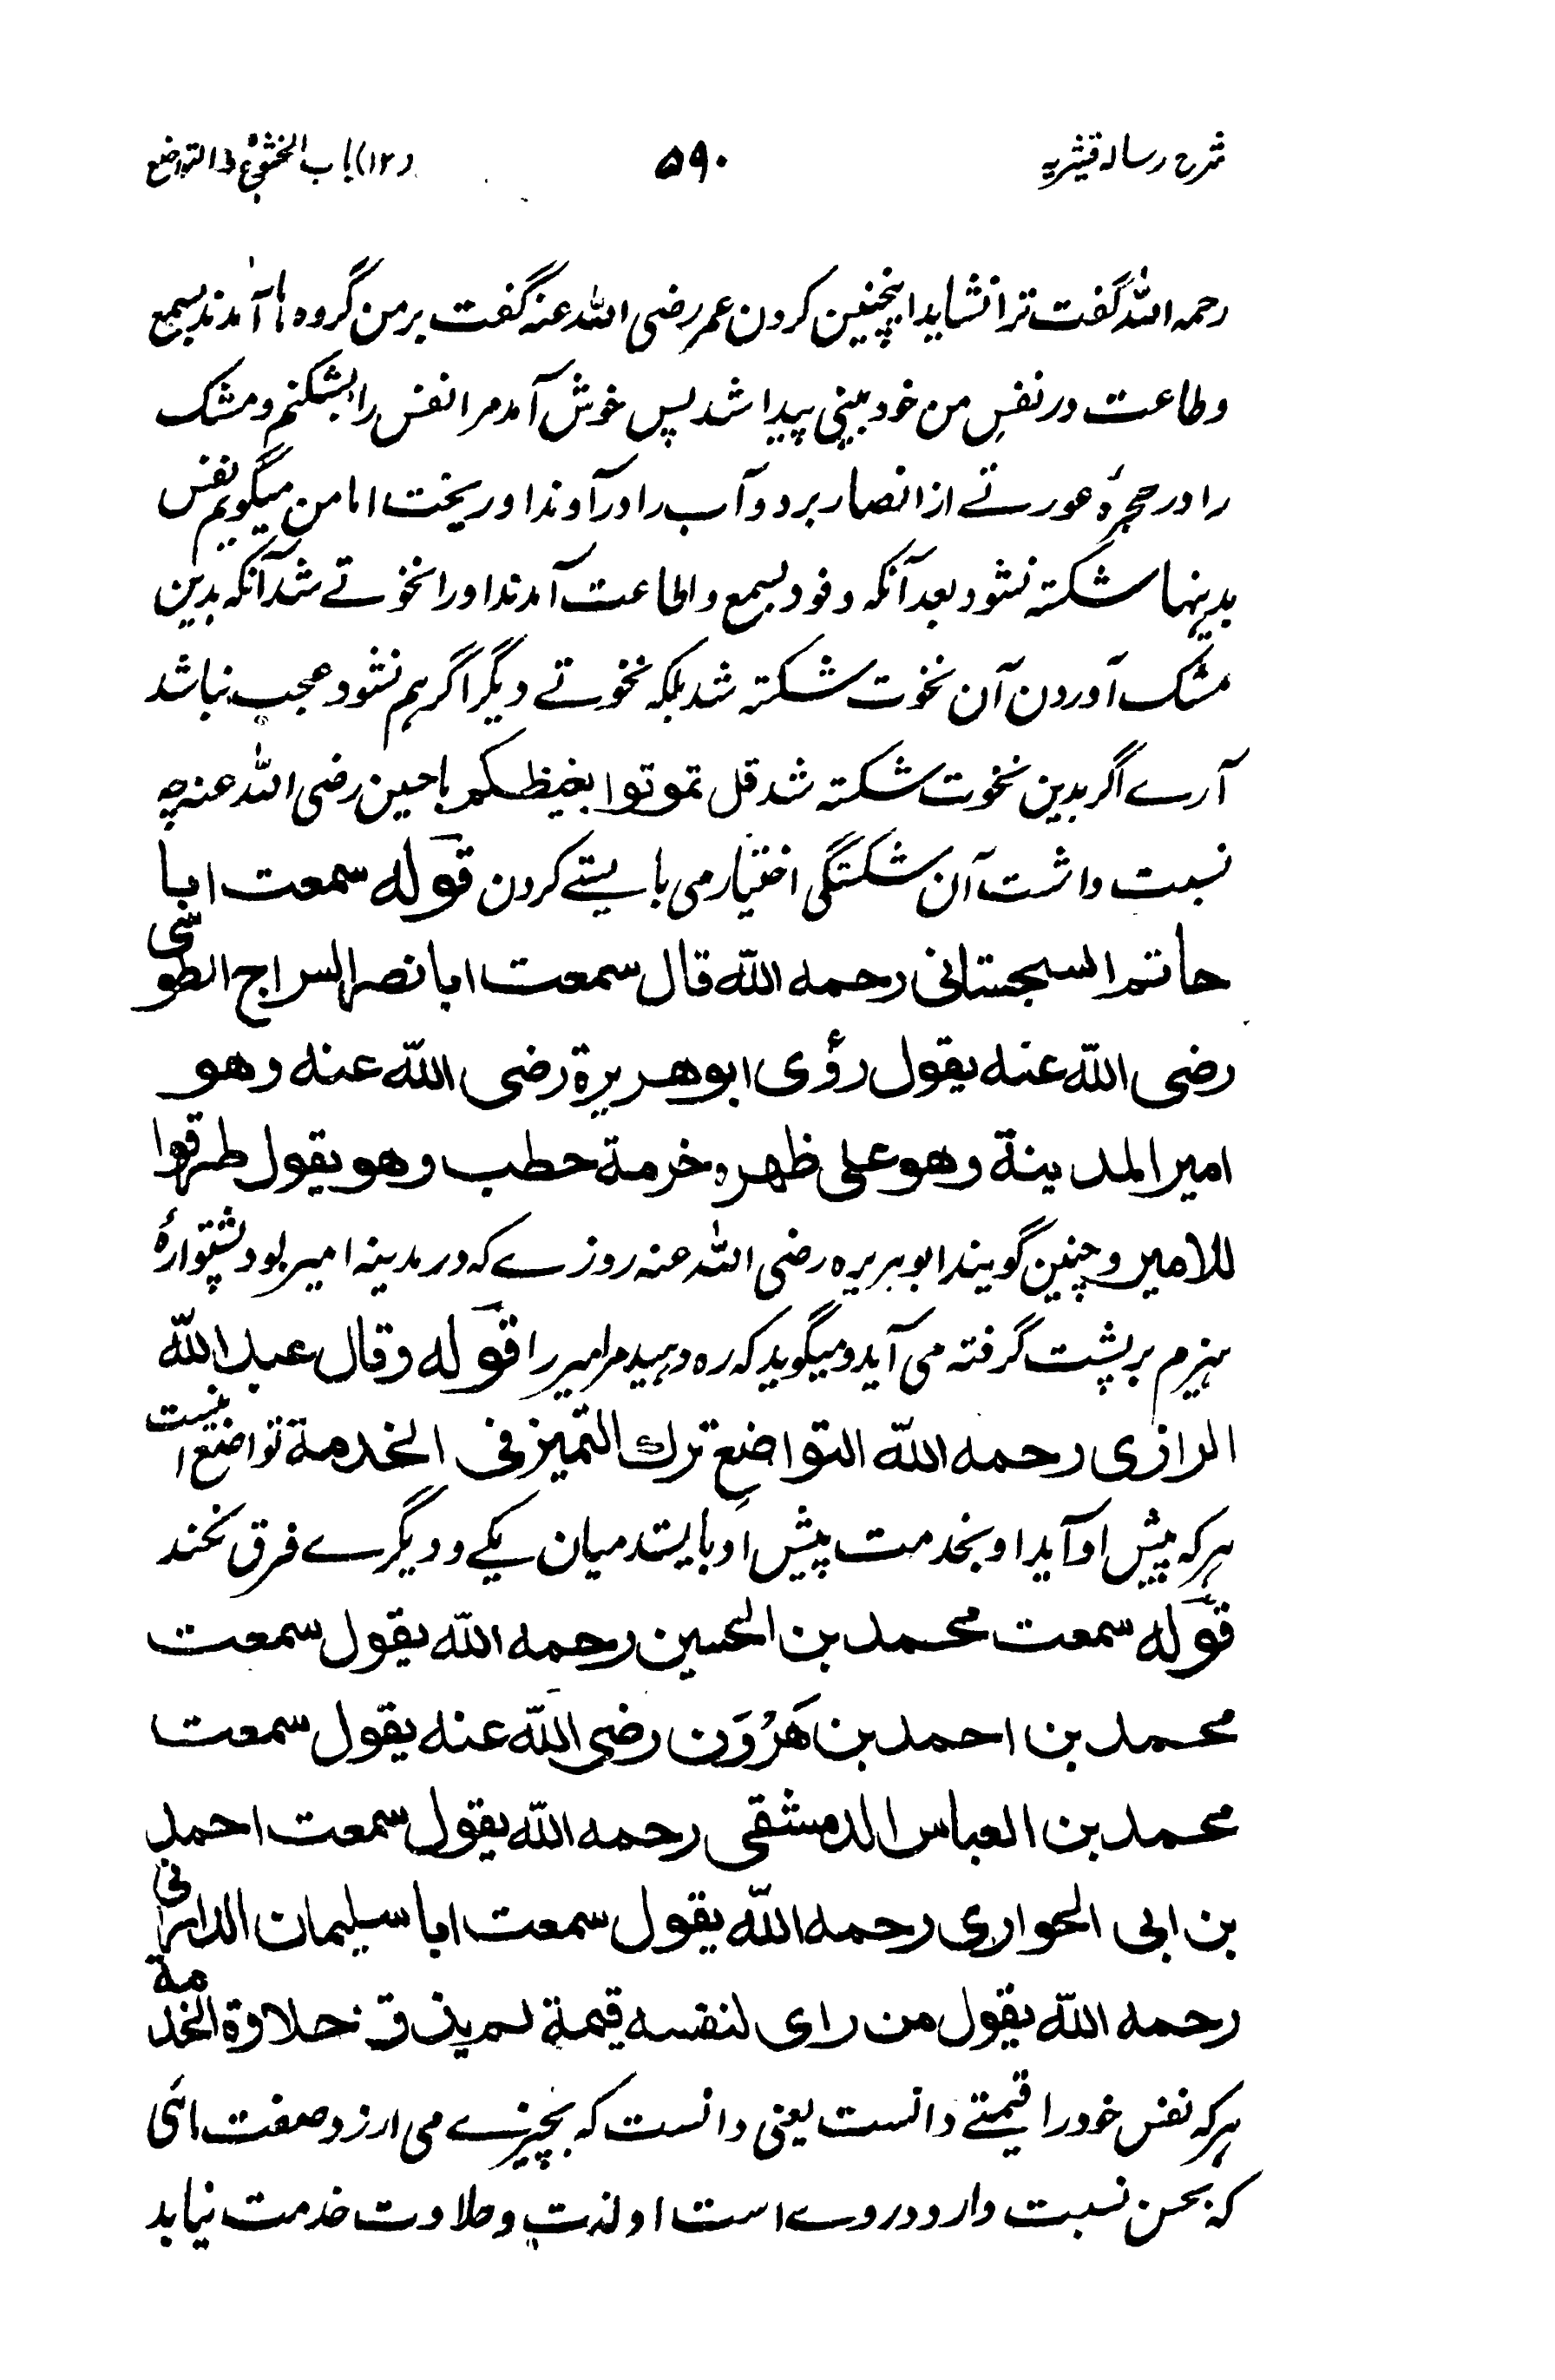 شرح رسالہ قشیریہ ۵۹۰ (۱۲) باب الخشوع و التواضع
رحمہ اللہ گفت ترا نشاید اینچنین کردن عمر رضی اللہ عنہ گفت بر من گروہ ہا آمدند بسمع
و طاعت در نفسِ من خود بینی پیدا شد پس خوش آمد مرا نفس را بشکنم و مشک
را در حجرۂ عورتے از انصار برد و آب را در آوند او ریخت اما من میگویم نفس
بدینہا شکستہ نشود بعد آنکہ وفود بسمع و اطاعت آمدند او را نخوتے شد آنکہ بدین
مشک آوردن آن نخوت شکستہ شد بلکہ نخوتے دیگر اگر ہم نشود عجب نباشد
آرے اگر بدین نخوت شکستہ شد قل تموتوا بغیظکم با حین رضی اللہ عنہ چہ
نسبت داشت آن شکستگی اختیار می بایستے کردن قولہ سمعت ابا
حاتم السجستانی رحمه اللّٰه قال سمعت ابا نصر السراج الطوسی
رضی اللّٰه عنه یقول رؤی ابو هریرة رضی اللّٰه عنه وهو
امیر المدینة وهو علی ظهره خرمة حطب وهو یقول طرقوا
للامیر و چنین گویند ابو ہریرہ رضی اللہ عنہ روزے کہ در مدینہ امیر بود پشتوارۂ
ہیزم بر پشت گرفتہ می آید و میگوید کہ رہ دہید مر امیر را قولہ وقال عبد اللّٰه
الرازی رحمه اللّٰه التواضع ترك التمیز فی الخدمة تواضع اینست
ہر کہ پیش او آید او بخدمت پیش او بایستد میان یکے و دیگرے فرق نکند
قولہ سمعت محمد بن الحسین رحمه اللّٰه یقول سمعت
محمد بن احمد بن هَرُوَن رضی اللّٰه عنه یقول سمعت
محمد بن العباس الدمشقی رحمه اللّٰه یقول سمعت احمد
بن ابی الحواری رحمه اللّٰه یقول سمعت ابا سلیمان الدارانی
رحمه اللّٰه یقول من رای لنفسه قیمة لم یذق حلاوة الخدمة
ہر کہ نفس خود را قیمتے دانست یعنی دانست کہ بچیزے می ارزد و صفت اَئی
کہ بحسن نسبت دارد در وے است او لذت و حلاوت خدمت نیابد